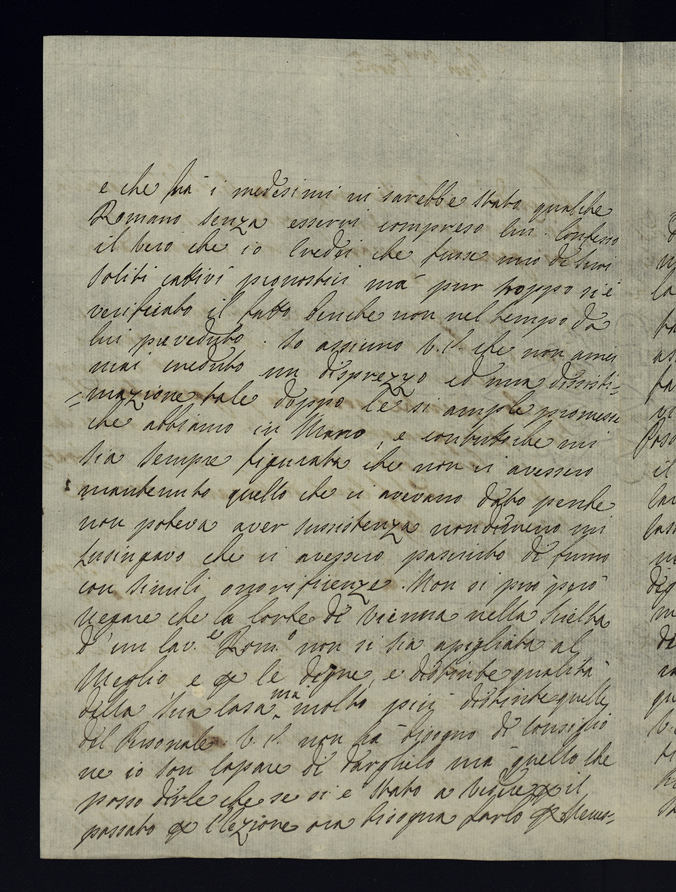 e che frà i medesimi vi sarebbe stato qualche
Romano senza esservi compreso lui. Confesso
il vero che io credei che fusse uno de suoi
soliti cattivi pronostici mà pur troppo si è
verificato il fatto benche non nel tempo da
lui preveduto. Io assicuro V.S. che non averei
mai creduto un disprezzo ed una disisti=
=mazione tale doppo le si ample promesse
che abbiamo in Mano, e contuttoche mi
sia sempre figurata che non ci avessero
mantenuto quello che ci avevano dato perche
non poteva aver sussistenza nondimeno mi
lusingavo che ci avessero pasciuto di fumo
con simili onorificenze. Non si può però
negare che la Corte di Vienna nella scielta
d'un Cav.e Rom.o non si sia apigliata al
Meglio e per le degne, e distinte qualità
della sua Casa, mà molto più distinte quelle
del Personale. V.S. non hà bisogno di Consiglio
ne io son capace di darglielo mà quello che
posso dirle che se si è stato a vedere per il
passato per l'elezione ora bisogna farlo per